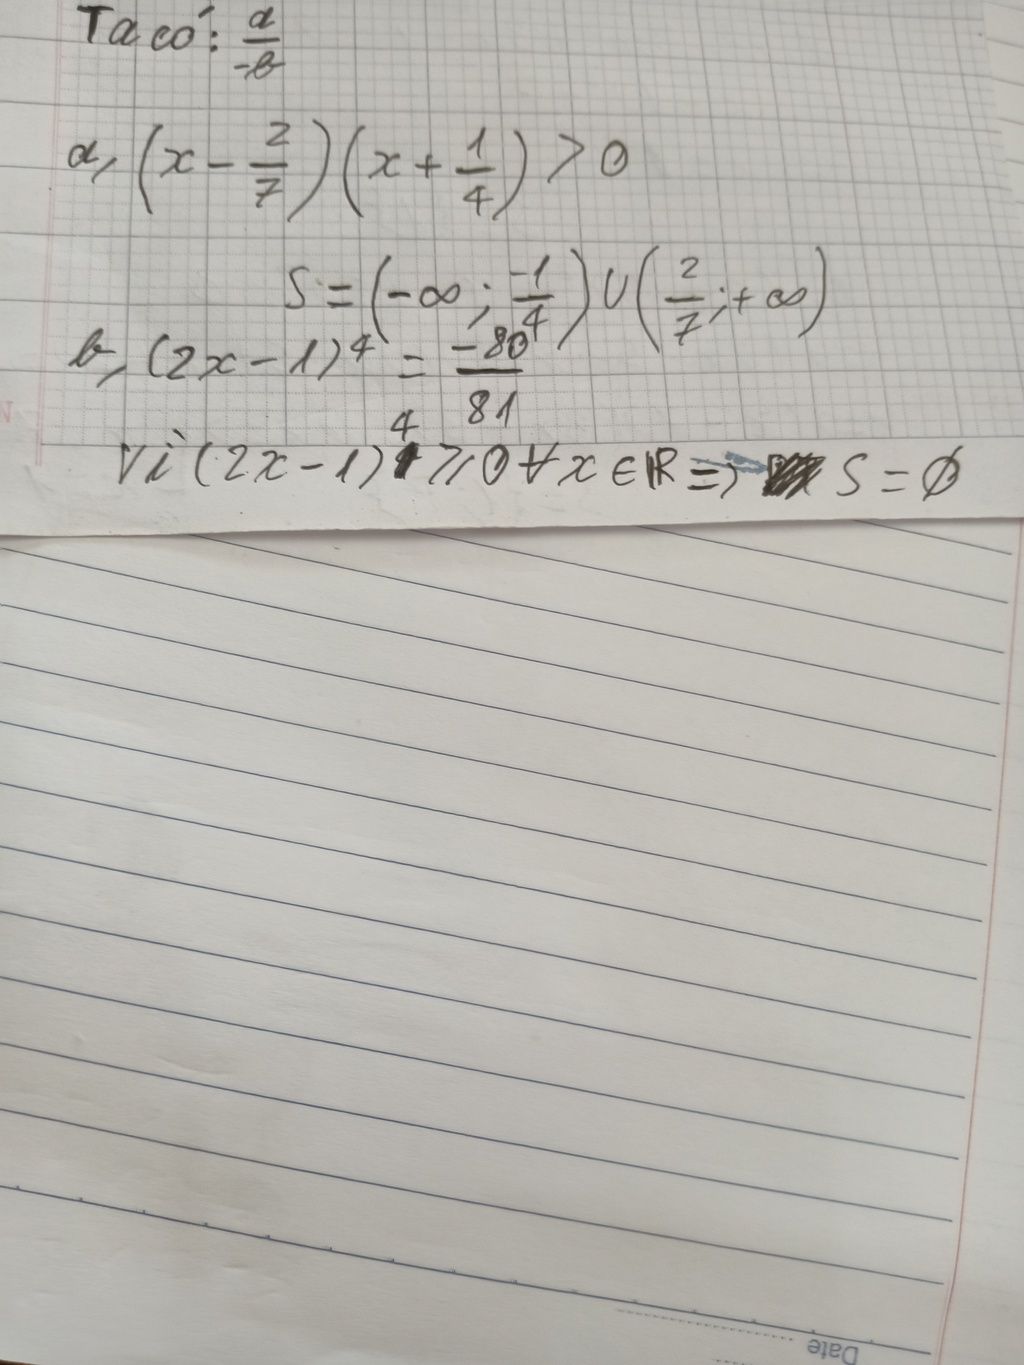 Ta có: a/-b
a, (x - 2/7)(x + 1/4) > 0
S = (-∞; -1/4) ∪ (2/7; +∞)
b, (2x - 1)^4 = -80/81
Vì (2x - 1)^4 ⩾ 0 ∀ x ∈ ℝ => S = ∅
Date